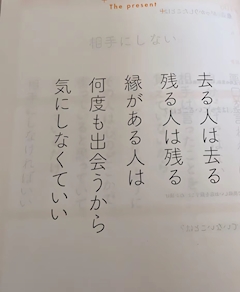 The present
去る人は去る
残る人は残る
縁がある人は
何度も出会うから
気にしなくていい